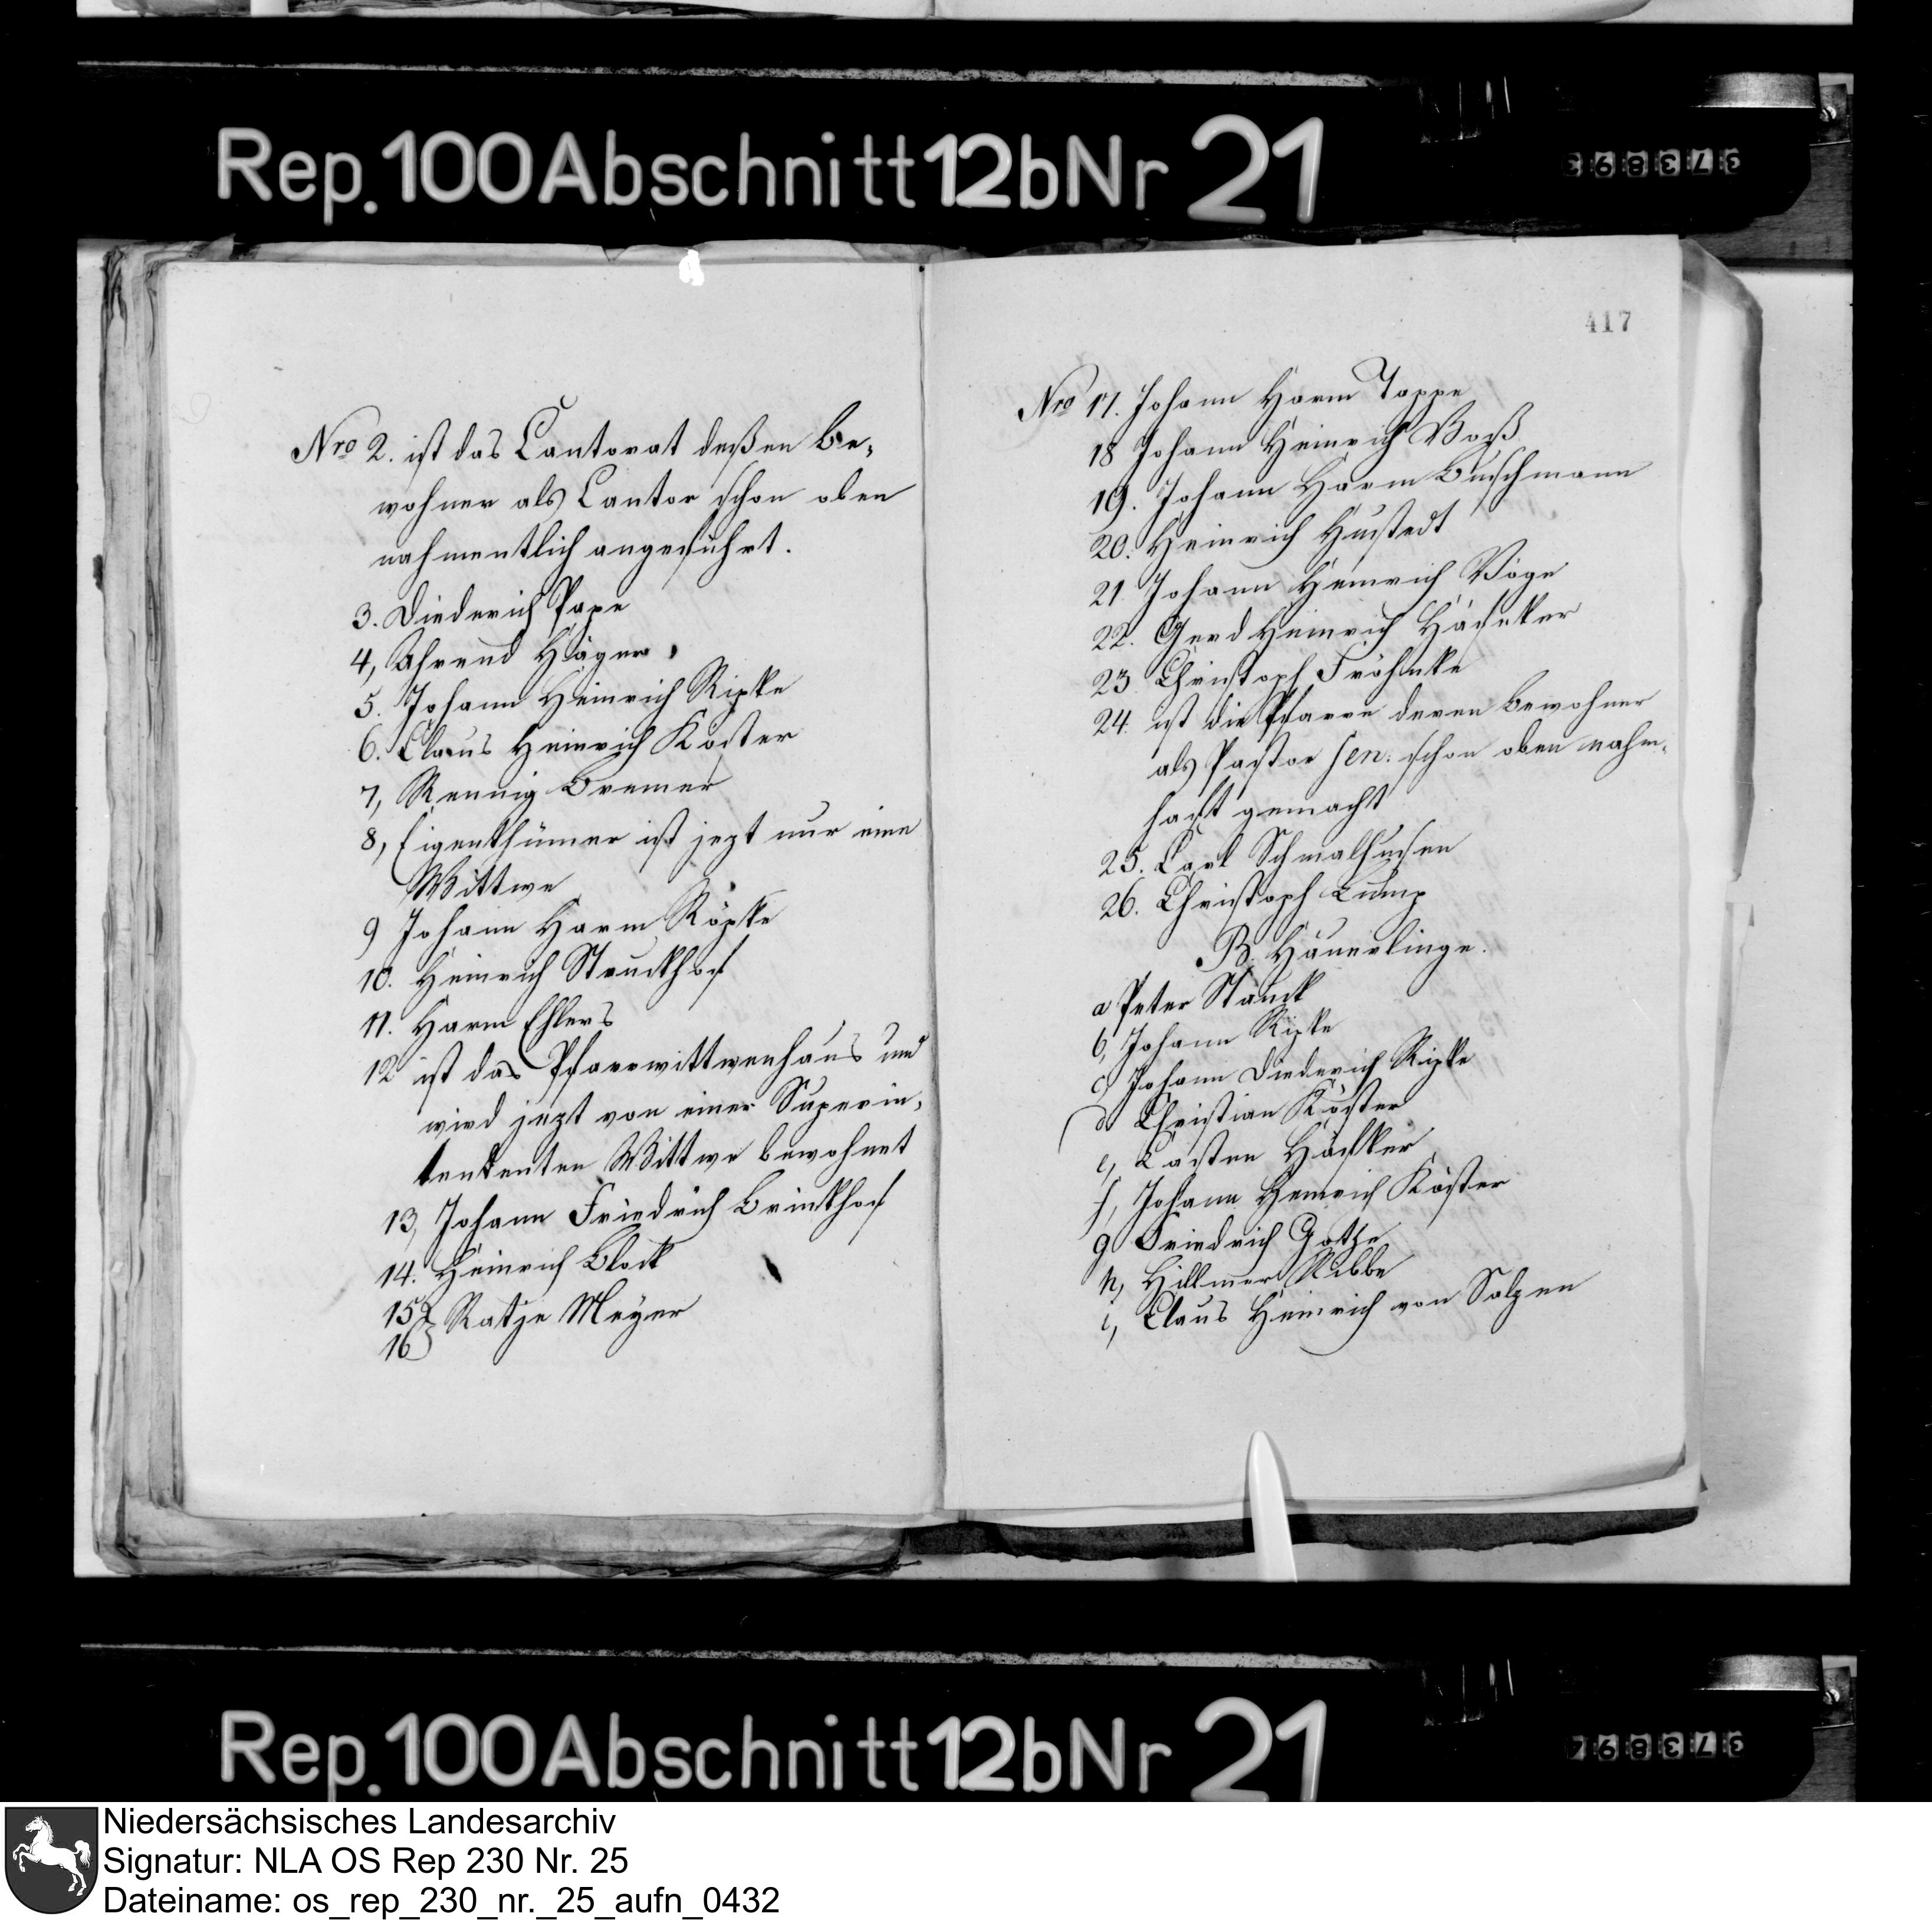 Rep. 100 Abschnitt 12b Nr 21
Nro 2. ist das Cantorat deßen Be-
wohner als Cantor schon oben
nahmentlich angeführt.
3. Diederich Pape
4, Ahrend Häger
5. Johann Heinrich Ripke
6. Claus Heinrich Köster
7, Rennig Bremer
8, Eigenthümer ist jezt nur eine
Wittwe
9 Johann Harm Röpke
10. Heinrich Struckhof
11. Harm Ehlers
12 ist das Pfarrwittwenhaus und
wird jezt von einer Superin-
tendenten Wittwe bewohnet
13, Johann Friedrich Brinkhof
14. Heinrich Block
15
16 Ratje Meyer
417
Nro 17. Johann Harm Toppe
18 Johann Heinrich Voß
19. Johann Harm Buschmann
20. Heinrich Hustedt
21 Johann Heinrich Vöge
22. Gerd Heinrich
23 Christoph Fröhlke
24. ist die Pfarre deren Bewohner
als Pastor sen. schon oben nahm-
haft gemacht
25. Carl Schmalhusen
26. Christoph Lump
B. Häuerlinge.
a Peter Stünck
b, Johann Ripke
c, Johann Diederich Ripke
d Christian Köster
e, Casten
f, Johann Heinrich Köster
g Friedrich Gotze
h, Hillmer Ribbe
i, Claus Heinrich von Salzen
Rep. 100 Abschnitt 12b Nr 21
Niedersächsisches Landesarchiv
Signatur: NLA OS Rep 230 Nr. 25
Dateiname: os_rep_230_nr._25_aufn_0432